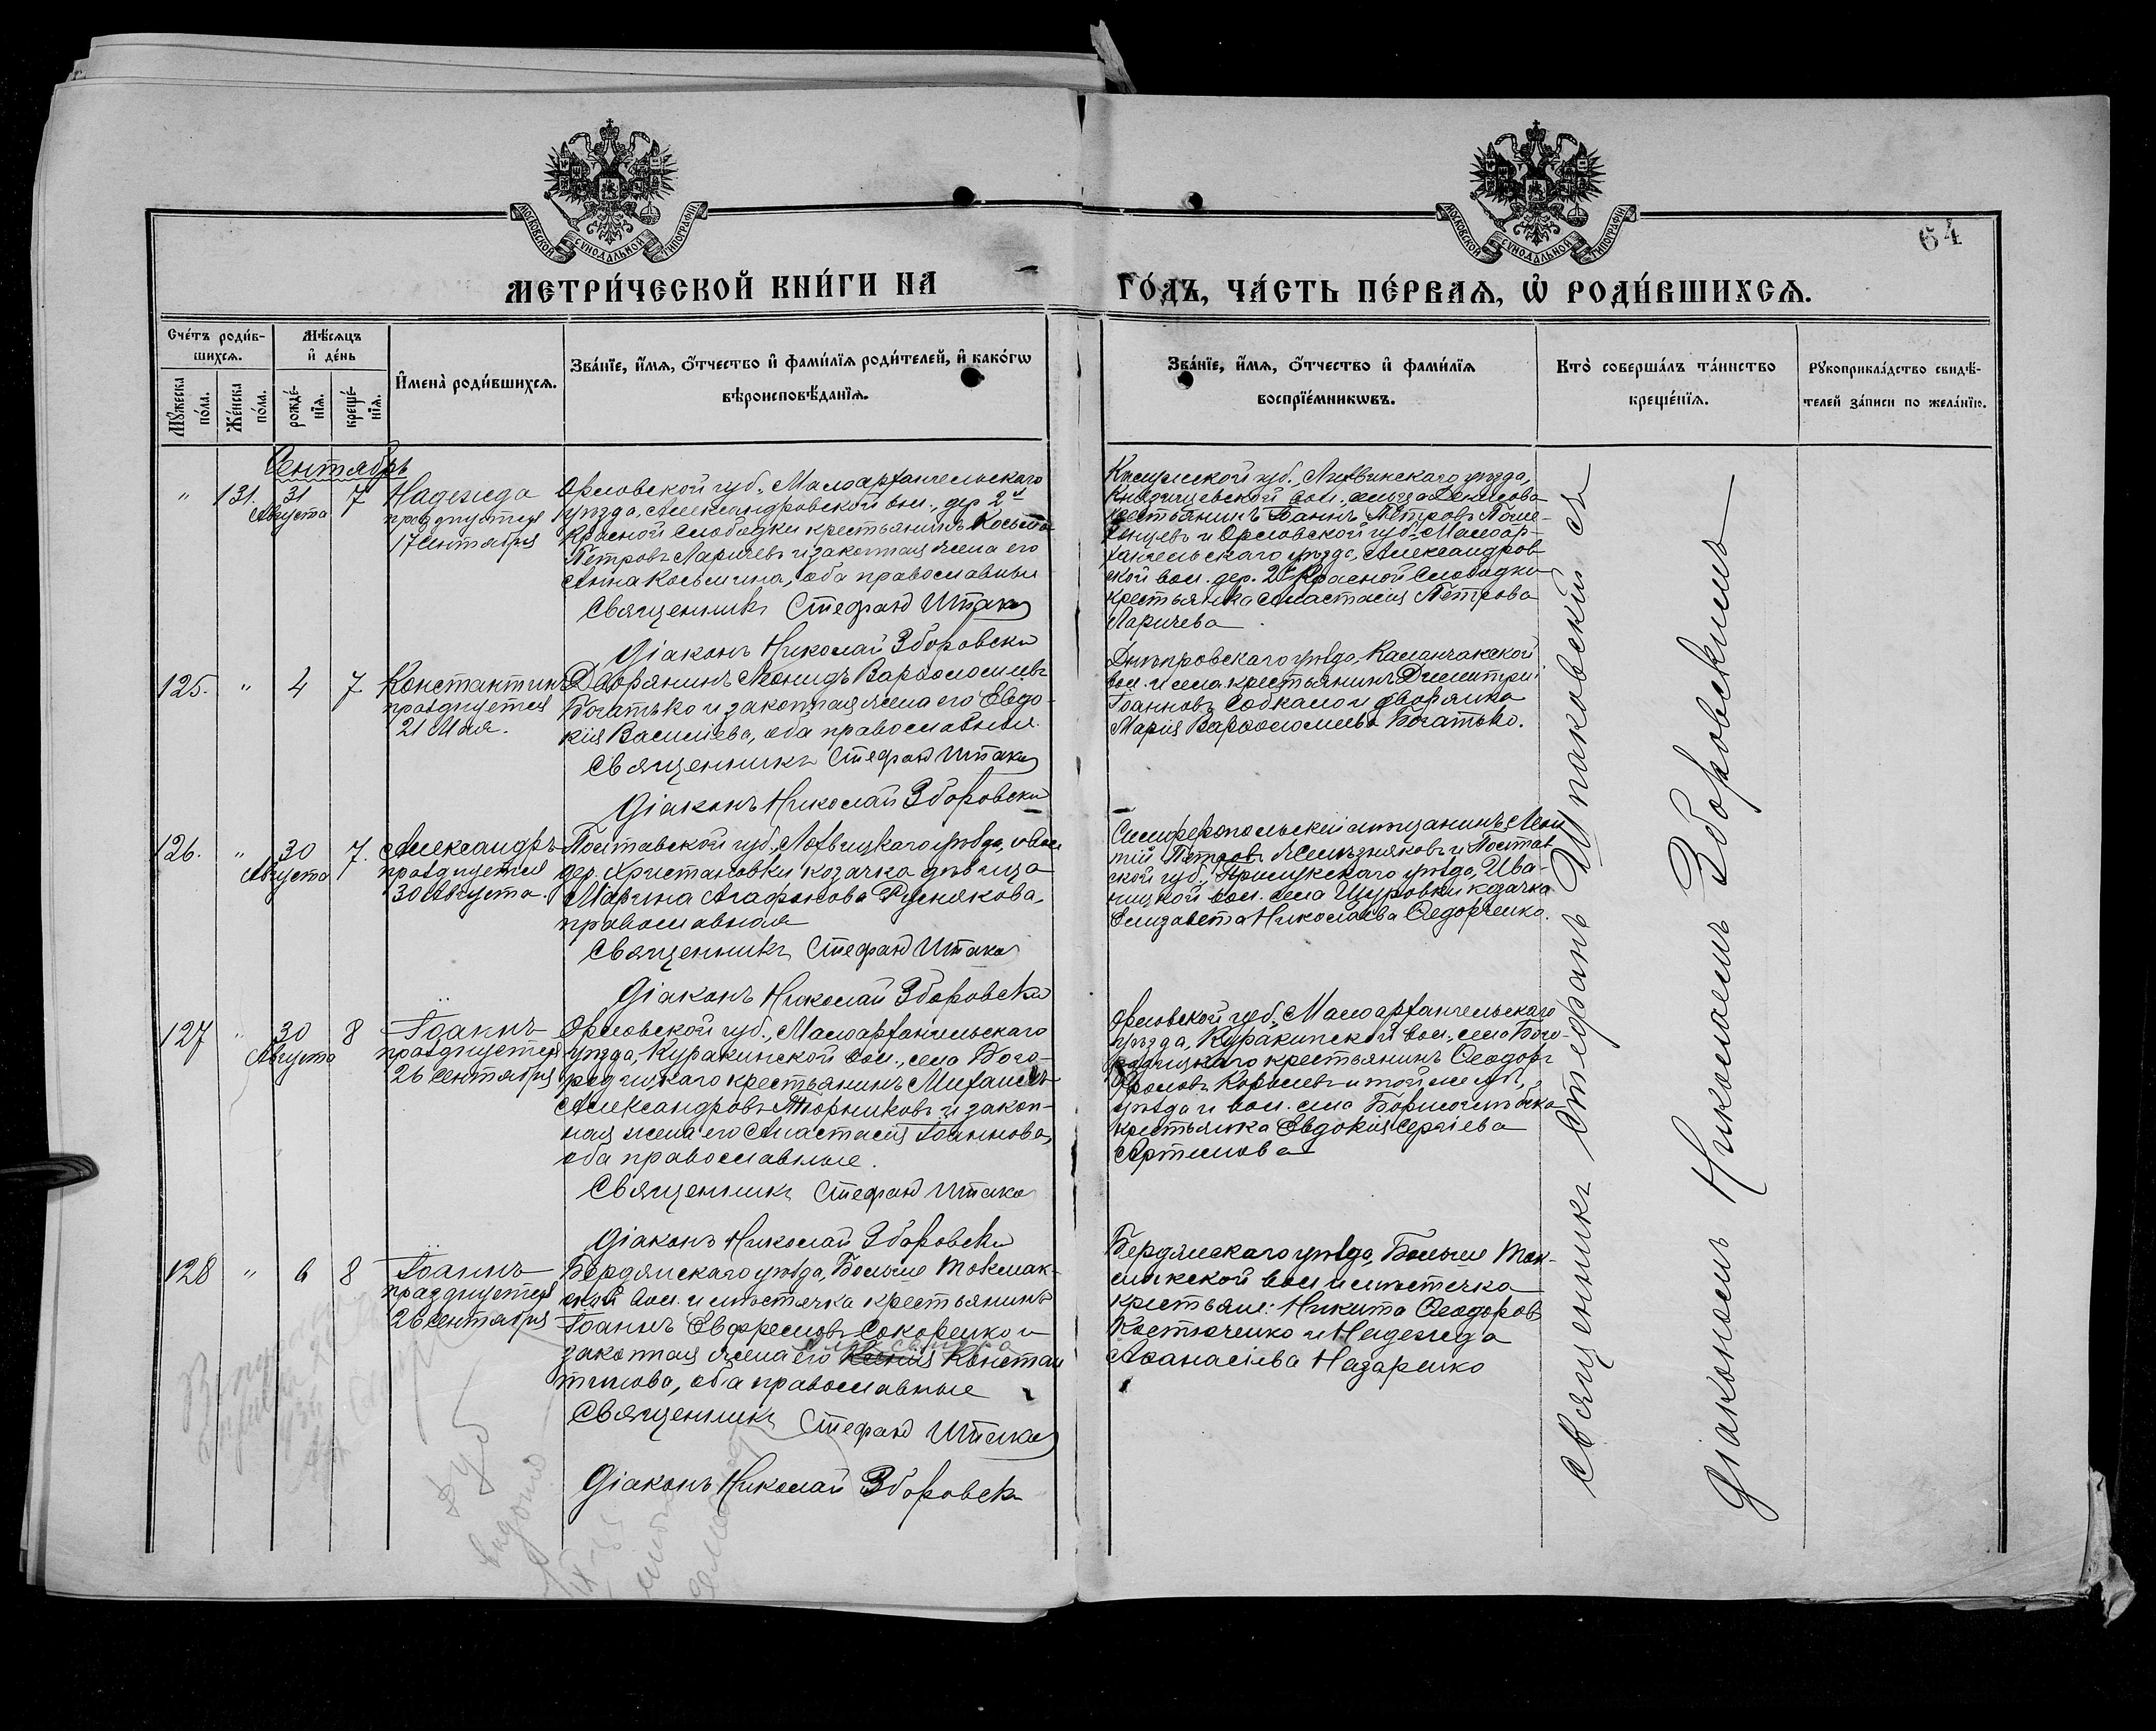 МОСКОВСКОЙ СѴНОДАЛЬНОЙ ТИПОГРАФІИ
МОСКОВСКОЙ СѴНОДАЛЬНОЙ ТИПОГРАФІИ
64
МЕТРИ́ЧЕСКОЙ КНИ́ГИ НА
ГО́ДЪ, ЧА́СТЬ ПЕ́РВАѦ, Ѽ РОДИ́ВШИХСѦ.
Сче́тъ роди́в-
шихсѧ.
Мѣ́сѧцъ
и҆ де́нь
Мꙋ́жеска
по́ла.
Же́нска
по́ла.
рожде́-
нїѧ.
креще́-
нїѧ.
И҆мена̀ роди́вшихсѧ.
Зва́нїе, и҆́мѧ, ѻ҆́тчество и҆ фами́лїѧ роди́телей, и҆ како́гѡ
вѣроисповѣ́данїѧ.
Зва́нїе, и҆́мѧ, ѻ҆́тчество и҆ фами́лїѧ
воспрїе́мникѡвъ.
Кто̀ соверша́лъ та́инство
креще́нїѧ.
Рꙋкоприкла́дство свидѣ́-
телей за́писи по жела́нїю.
Сентябрь
" 131. 31 Августа 7
Надежда
празднуется
17 Сентября
Орловской губ., Малоархангельскаго
уѣзда, Александровской вол., дер. 2й
Красной Слободки крестьянинъ Косьма
Петровъ Ларичевъ и законная жена его
Анна Косьмина, оба православные
Священникъ Стефанъ Шпако
Діаконъ Николай Зборовски
уѣзда,
вол. сельца Денисова
крестьянинъ Іоаннъ Петровъ
и Орловской губ., Малоар-
хангельскаго уѣзда, Александров-
ской вол. дер. 2й Красной Слободки
крестьянка Анастасія Петрова
Ларичева
125. " 4 7
Константинъ
празднуется
21 Мая.
Дворянинъ Леонидъ Варѳоломеевъ
Богатько и законная жена его Евдо-
кія Василіева, оба православные.
Священникъ Стефанъ Шпако
Діаконъ Николай Зборовски
Днѣпровскаго уѣзда, Каланчакской
вол. и села крестьянинъ Димитрій
Іоанновъ Собкало и дворянка
Марія Варѳоломеева Богатько.
126. " 30 Августа 7.
Александръ
празднуется
30 Августа.
Полтавской губ., Лохвицкаго уѣзда, и вол.
дер. Христановки козачка дѣвица
Марина Агафонова Руснякова,
православная
Священникъ Стефанъ Шпако
Діаконъ Николай Зборовски
Симферопольскій мѣщанинъ Леон-
тій Петровъ Желѣзняковъ и Полтав-
ской губ., Прилукскаго уѣзда, Ива-
ницкой вол. села Щуровки козачка
Елизавета Николаева Ѳедорченко.
127 " 30 Августа 8
Іоаннъ
празднуется
26 Сентября
Орловской губ., Малоархангельскаго
уѣзда, Куракинской вол., села Бого-
родицкаго крестьянинъ Михаилъ
Александровъ и закон-
ная жена его Анастасія Іоаннова,
оба православные.
Священникъ Стефанъ Шпако
Діаконъ Николай Зборовски
Орловской губ., Малоархангельскаго
уѣзда, Куракинской вол., села Бого-
родицкаго крестьянинъ Ѳеодоръ
и той же губ.,
уѣзда и вол. села
крестьянка Евдокія Сергіева
Артемова
128 " 6 8
Іоаннъ
празднуется
26 Сентября
Бердянскаго уѣзда, Больше Токмак-
ской вол. и мѣстечка крестьянинъ
Іоаннъ Евфремовъ Сокоренко и
законная жена его Ксенія Констан-
тинова, оба православные
Священникъ Стефанъ Шпако
Діаконъ Николай Зборовск
Бердянскаго уѣзда, Больше Ток-
макской вол. и мѣстечка
крестьяне: Никита Ѳеодоровъ
Костюченко и Надежда
Аѳанасіева Назаренко
Священникъ Стефанъ Шпаковскій съ
Діакономъ Николаемъ Зборовскимъ